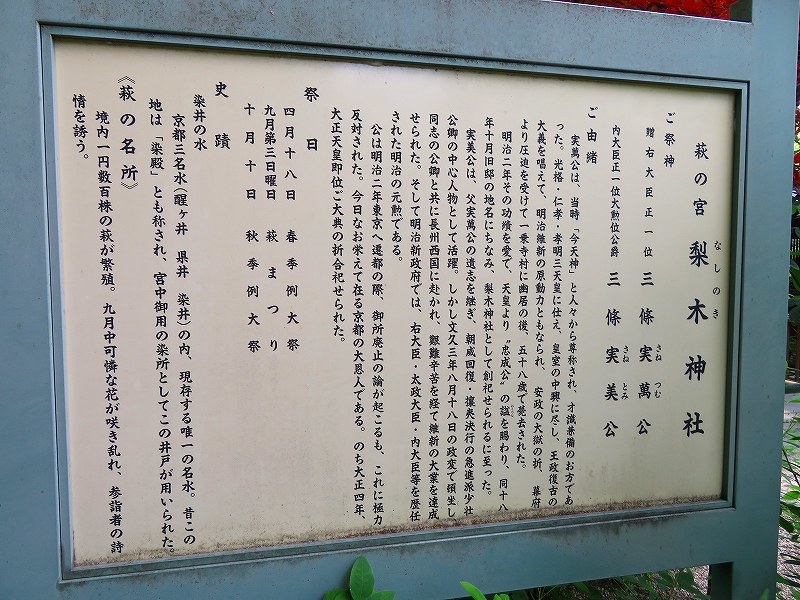 萩の宮 梨木神社
なしのき
ご祭神
贈右大臣正一位 三條実萬公
さねつむ
内大臣正一位大勲位公爵 三條実美公
さねとみ
ご由緒
実萬公は、当時「今天神」と人々から尊称され、才識兼備のお方であ
った。光格・仁孝・孝明三天皇に仕え、皇室の中興に尽し、王政復古の
大義を唱えて、明治維新の原動力ともなられ、安政の大獄の折、幕府
より圧迫を受けて一乗寺村に幽居の後、五十八歳で薨去された。
明治二年その功績を愛で、天皇より〝忠成公〟の諡を賜わり、同十八
年十月旧邸の地名にちなみ、梨木神社として創祀せられるに至った。
実美公は、父実萬公の遺志を継ぎ、朝威回復・攘夷決行の急進派少壮
公卿の中心人物として活躍。しかし文久三年八月十八日の政変で傾坐し
同志の公卿と共に長州西国に赴かれ、艱難辛苦を経て維新の大業を達成
せられた。そして明治新政府では、右大臣・太政大臣・内大臣等を歴任
された明治の元勲である。
公は明治二年東京へ遷都の際、御所廃止の論が起こるも、これに極力
反対された。今日なお栄えて在る京都の大恩人である。のち大正四年、
大正天皇即位ご大典の折合祀せられた。
祭日
四月十八日 春季例大祭
九月第三日曜日 萩まつり
十月十日 秋季例大祭
史蹟
染井の水
京都三名水(醒ヶ井 県井 染井)の内、現存する唯一の名水。昔この
地は「染殿」とも称され、宮中御用の染所としてこの井戸が用いられた。
《萩の名所》
境内一円数百株の萩が繁殖。九月中可憐な花が咲き乱れ、参詣者の詩
情を誘う。